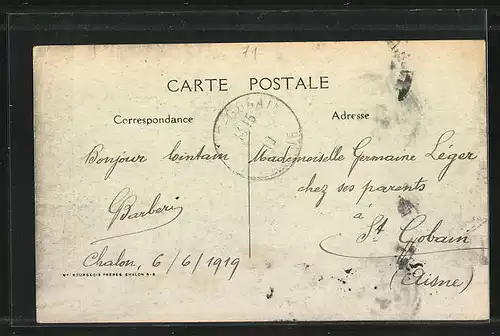 71
CARTE POSTALE
Correspondance
Adresse
GOBAIN
15
Bonjour lointain
Barberi
Chalon, 6/6/1919
Mademoiselle Germaine Léger
chez ses parents
à
St Gobain
(Aisne)
BOURGEOIS FRÈRES, CHALON S-S